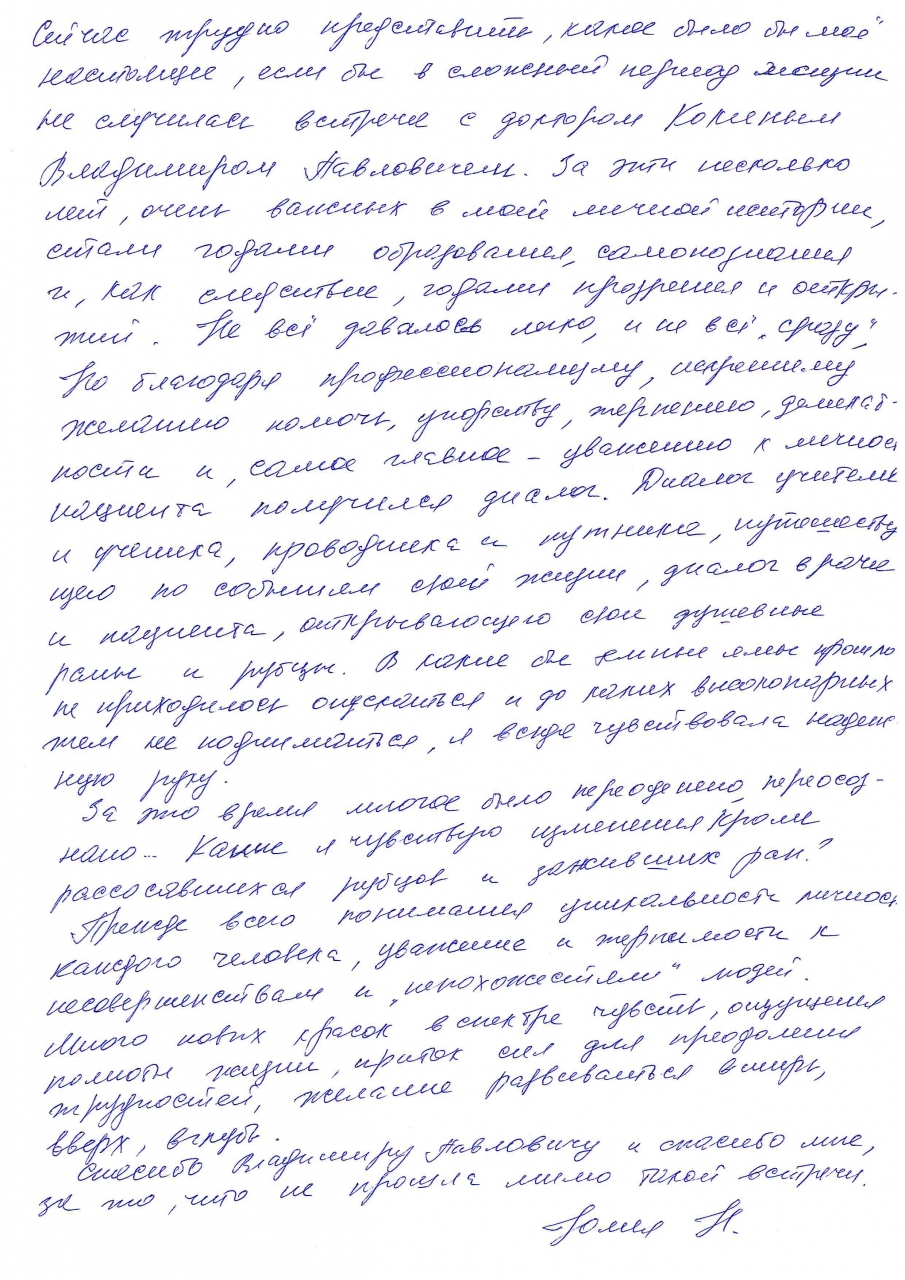 Сейчас трудно представить, какое было бы моё
настоящее, если бы в сложный период жизни
не случилась встреча с доктором
Владимиром Павловичем. За эти несколько
лет, очень важных в моей личной истории,
стали годами образования, самопознания
и, как следствие, годами прозрения и откры-
тий. Не всё давалось легко, и не всё „сразу",
Но благодаря профессионализму, искреннему
желанию помочь, упорству, терпению, деликат-
ности и, самое главное – уважению к личнос
пациента получился диалог. Диалог учителя
и ученика, проводника и путника, путешеству
щего по событиям своей жизни, диалог врача
и пациента, открывающего свои душевные
раны и рубцы. В какие бы ямы прошло
не приходилось опускаться и до каких высокопарных
тем не подниматься, я всюду чувствовала надеж-
ную руку.
За это время многое было переоценено, переосоз-
нано... Какие я чувствую изменения кроме
рассосавшихся рубцов и заживших ран?
Прежде всего понимания уникальности личнос
каждого человека, уважение и терпимости к
несовершенствам и „непохожестям" людей.
Много новых красок в спектре чувств, ощущения
полноты жизни, приток сил для преодоления
трудностей, желание развиваться вширь,
вверх, вглубь.
Спасибо Владимиру Павловичу и спасибо мне,
за то, что не прошла мимо такой встречи.
Юлия Н.